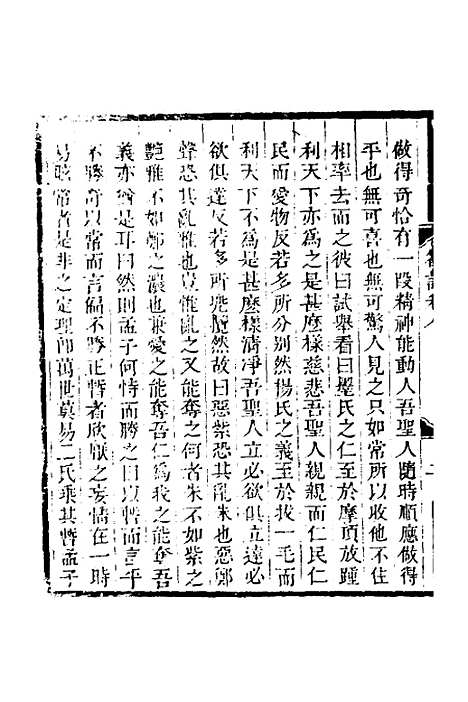 做得奇恰有一段精神能動人吾聖人隨時順應做得
平也無可喜也無可驚人見之只如常所以收他不住
相率去而之彼曰試舉看曰墨氏之仁至於摩頂放踵
利天下亦為之是甚麼樣慈悲吾聖人親親而仁民仁
民而愛物反若多所分別然楊氏之義至於拔一毛而
利天下不為是甚麼樣清淨吾聖人立必欲俱立達必
欲俱達反若多所兜攬然故曰惡紫恐其亂朱也惡鄭
聲恐其亂雅也豈惟亂之又能奪之何者朱不如紫之
艷雅不如鄭之濃也兼愛之能奪吾仁為我之能奪吾
義亦猶是耳曰然則孟子何恃而勝之曰以暫而言平
不勝奇以常而言偏不勝正暫者欣厭之妄情在一時
易眩常者是非之定理即萬世莫易二氏乘其暫孟子